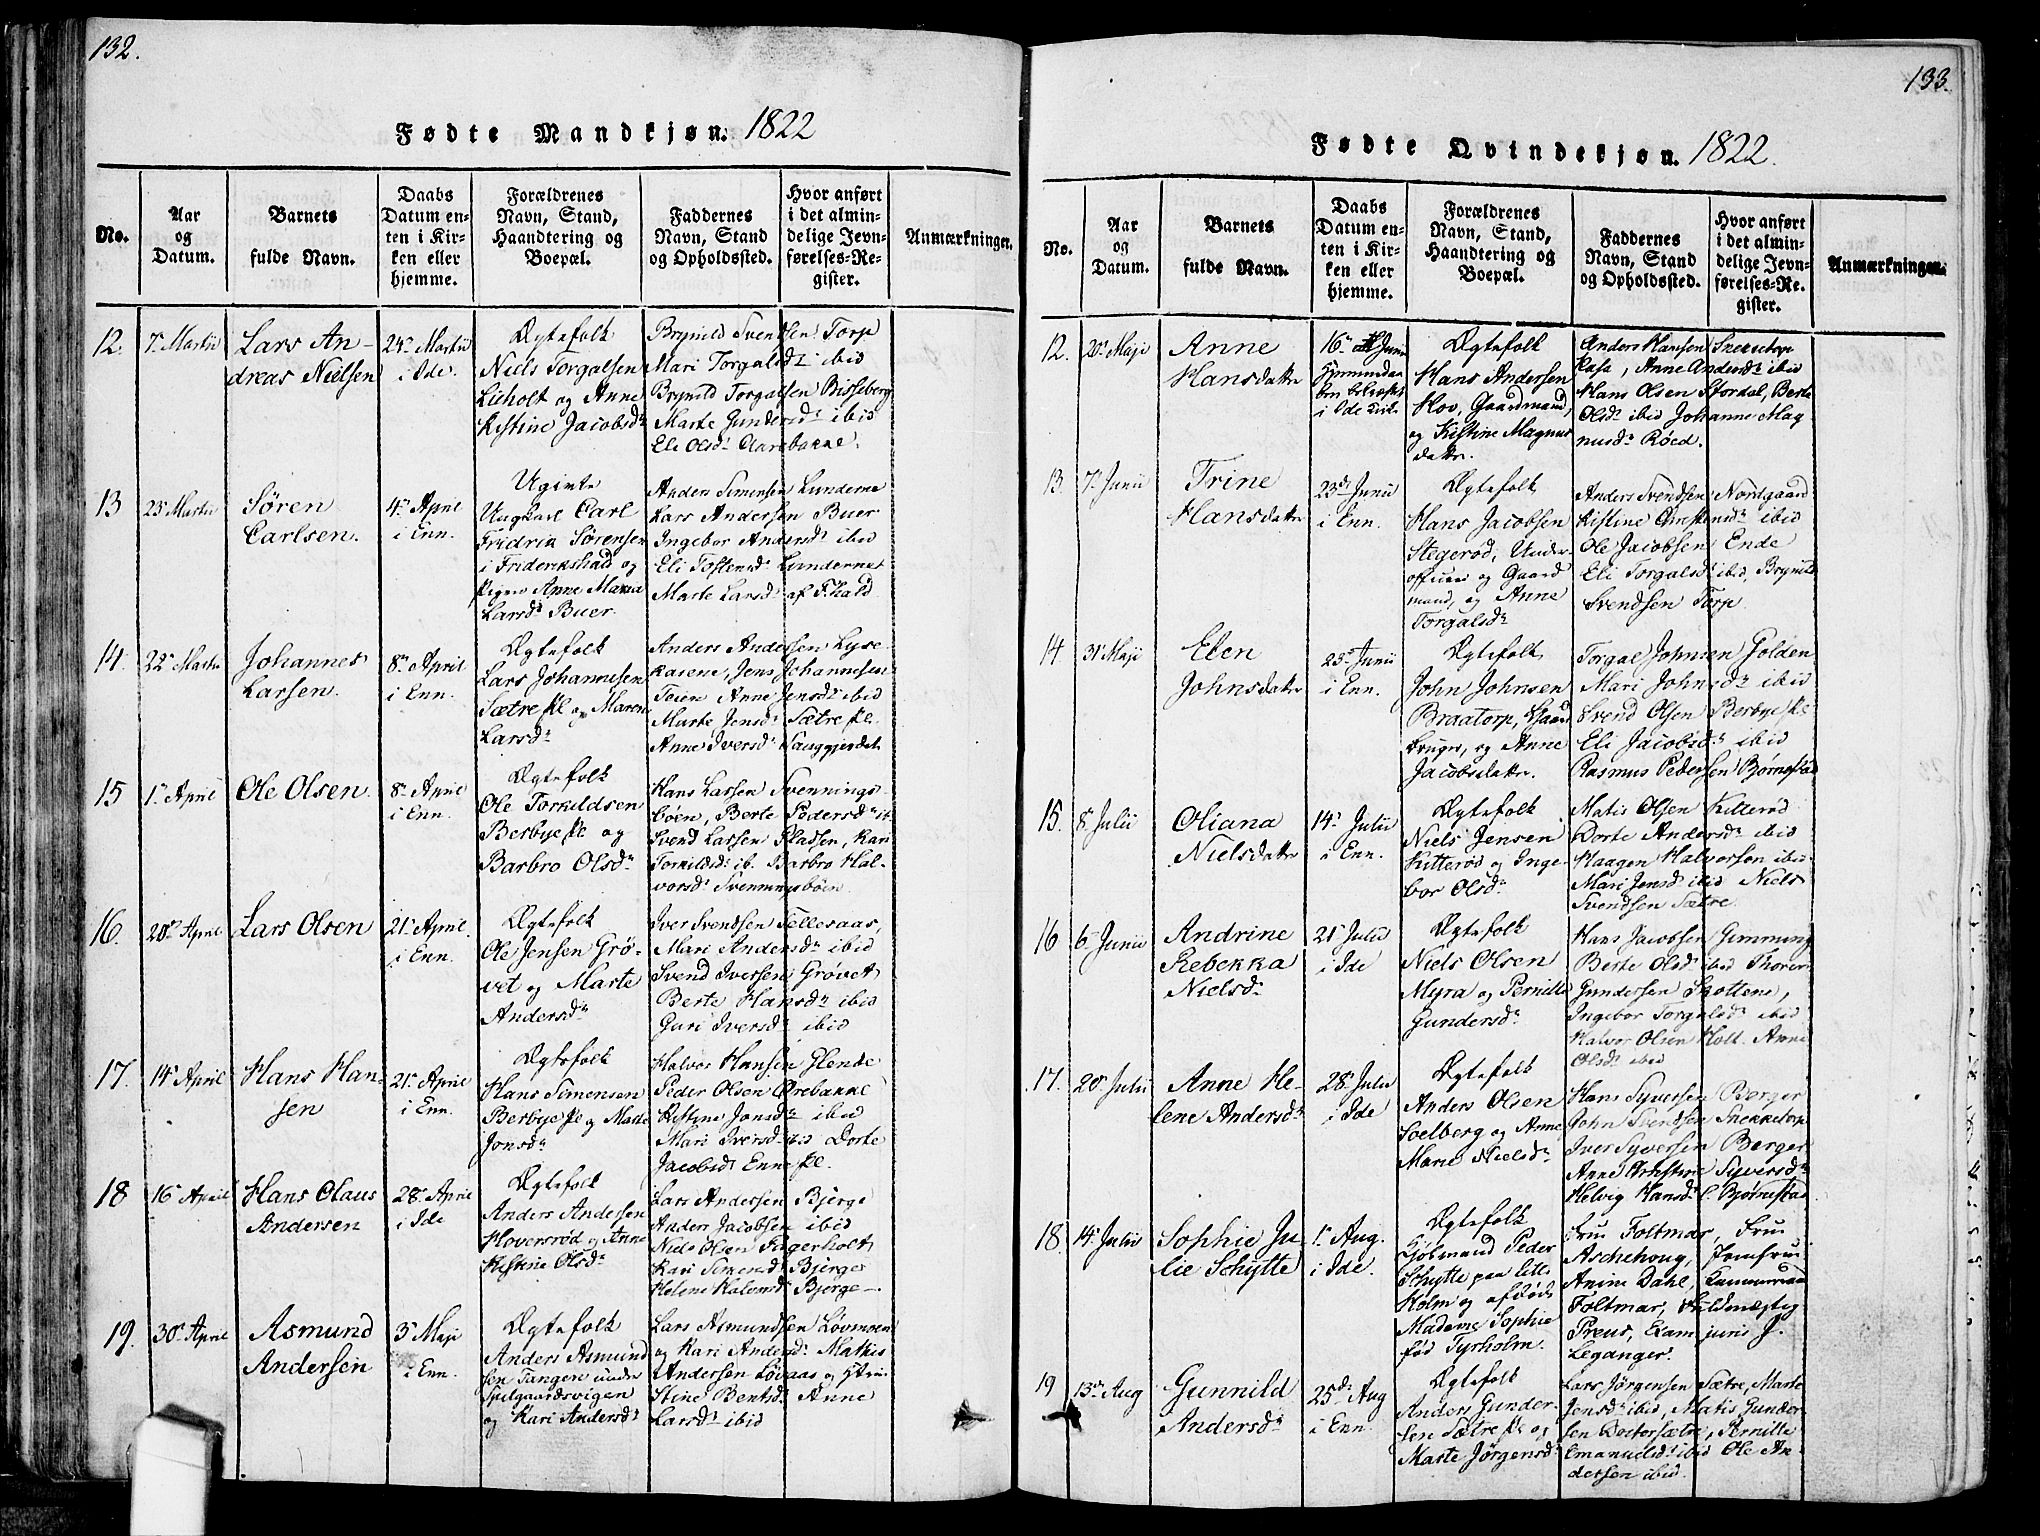 132.
Fødte Mandkjøn. 1822
No.
Aar
og
Datum.
Barnets
fulde Navn.
Daabs
Datum en-
ten i Kir-
ken eller
hjemme.
Forældrenes
Navn, Stand,
Haandtering og
Boepæl.
Faddernes
Navn, Stand
og Opholdssted.
Hvor anført
i det almin-
delige Jevn-
førelses-Re-
gister.
Anmærkninger.
12.
7de Martii
Lars An-
dreas Nielsen
24de Martii
i Ide.
Ægtefolk
Niels Torgalsen
Lieholt og Anne
Kistine Jacobsdr
Brynild Svendsen Torp
Mari Torgalsdr ibid
Brynild Torgalsen Bisseberg
Marte Gundersdr ibid
Eli Olsdr Aarebakke.
13
23de Martii
Søren
Carlsen.
4de April
i Enn.
Ugivte
Ungkarl Carl
Fridrik Sørensen
i Frideriksha​ld og
Pigen Anne Maria
Larsdr Buer
Anders Simensen Lunderne
Lars Andersen Buer
Ingebor Andersdr ibid
Eli Tostensdr Lunderne
Marte Larsdr af F:hald
14.
22de Martii
Johannes
Larsen.
8de April
i Enn.
Ægtefolk
Lars Johannesen
Sætre Pl og Maren
Larsdr
Anders Andersen Lyse-
Jens Johannesen
Anne Jensdr ibid
Marte Jensdr Sætre Pl.
Anne Iversdr
15
1te April
Ole Olsen.
8de April
i Enn.
Ægtefolk
Ole Torkildsen
Berbye Pl og
Barbro Olsdr
Hans Larsen Svennings-
bøen, Berte Pedersdr ib
Svend Larsen Pladsen, Kari
Torkildsdr ib. Barbro Hal-
vorsdr Svenningsbøen.
16.
20de April
Lars Olsen
21de April
i Enn.
Ægtefolk
Ole Jensen Grø-
vet og Marte
Andersdr
Iver Svendsen Tellesaas,
Mari Andersdr ibid
Svend Iversen Grøvet
Berte Hansdr ibid
Guri Iversdr ibid
17.
14de April
Hans Han-
sen
21de April
i Enn.
Ægtefolk
Hans Simensen
Berbye Pl og Marte
Jonsdr
Halvor Hansen Glende
Peder Olsen Ørebakke
Kistine Jonsdr ibid
Mari Iversdr ibid Dorte
Jacobsdr Enne Pl.
18
16de April
Hans Olaus
Andersen
28de April
i Ide
Ægtefolk
Anders Andersen
Hoversrød og Anne
Kistine Olsdr
Lars Andersen Bjerge
Anders Jacobsen ibid
Niels Olsen Fagerholt
Kari Simensdr Bjerge
Helene Halvorsdr Bjerge
19.
30de April
Asmund
Andersen
3de Maji
i Enn.
Ægtefolk
Anders Asmund
sen Tangen under
Spelgaardsvigen
og Kari Andersdr
Lars Asmundsen Løvmoen
og Kari Andersdr Mathis
Andersen Løvaas og
Stine Bentsdr Anne
Larsdr ibid
133.
Fødte Qvindekjøn. 1822.
No.
Aar
og
Datum.
Barnets
fulde Navn.
Daabs
Datum en-
ten i Kir-
ken eller
hjemme.
Forældrenes
Navn, Stand,
Haandtering og
Boepæl.
Faddernes
Navn, Stand
og Opholdssted.
Hvor anført
i det almin-
delige Jevn-
førelses-Re-
gister.
Anmærkninger.
12.
20de Maji
Anne
Hansdatter
16de Junii
i Ide Kirke
Ægtefolk
Hans Andersen
Hov, Gaardmand,
og Kistine Magnus
datter.
Anders Hansen Snekketorp
Kasa, Anne Andersdr ibid
Hans Olsen Stordal, Berte
Olsdr ibid Johanne Mag
nusdr Røed.
13.
7de Junii
Trine
Hansdatter
23de Junii
i Enn.
Ægtefolk
Hans Jacobsen
Stegerød, Under-
officeer og Gaard
mand, og Anne
Torgalsdr
Anders Svendsen Nordgaard
Kistine Christensdr ibid
Ole Jacobsen Ende
Eli Torgalsdr ibid, Brynild
Svendsen Torp
14
31te Maji
Elen
Johnsdatter
23de Junii
i Enn.
Ægtefolk
John Johnsen
Braatorp, Gaard
bruger, og Anne
Jacobsdatter.
Torgal Johnsen Folden
Mari Johnsdr ibid
Svend Olsen Berbye Pl
Eli Jacobsdr ibid
Rasmus Pedersen Bjørnestad
15.
8de Julii
Oliana
Nielsdatter
14de Julii
i Enn.
Ægtefolk
Niels Jensen
Kitterød og Inge-
bor Olsdr
Matis Olsen Kitterød
Dorte Andersdr ibid
Haagen Halvorsen ibid
Mari Jensdr ibid Niels
Svendsen Sætre.
16
6te Junii
Andrine
Rebekka
Nielsdr
21de Julii
i Ide
Ægtefolk
Niels Olsen
Myra og Pernille
Gundersdr
Hans Jacobsen Gimming
Berte Olsdr ibid Thorer
Gundersen Skottene,
Ingebor Torgalsdr ibid
Halvor Olsen Holt. Anne
Olsdr ibid
17.
20de Julii
Anne He-
lene Andersdr
28de Julii
i Ide
Ægtefolk
Anders Olsen
Soelberg og Anne
Marie Nielsdr
Hans Syversen Berger
John Svendsen Snekketorp
Iver Syversen Berger
Anne Christine Syversdr
Helvig Hansdr l. Bjørnestad
18.
14de Julii
Sophie Ju
lie Schytte
1te Aug.
i Ide.
Ægtefolk
Kjøbmand Peder
Schytte paa lille
Holm og afdøde
Madame Sophie
fød Tyrholm.
Frue Foltmar, Frue
Aschehoug, Jomfrue
Anine Dahl, Kammerraad
Foltmar, Fuldmægtig
Preus, Exam juris J.
Leganger.
19
13de Aug
Gunnild
Andersdr
25de Aug
i Enn.
Ægtefolk
Anders Gunder-
sen Sætre Pl og
Marte Jørgensdr
Lars Jørgensen Sætre, Marte
Jensdr ibid, Matis Gunder-
sen Dortersætre, Pernille
Emanuelsdr ibid Ole An-
dersen ibid.